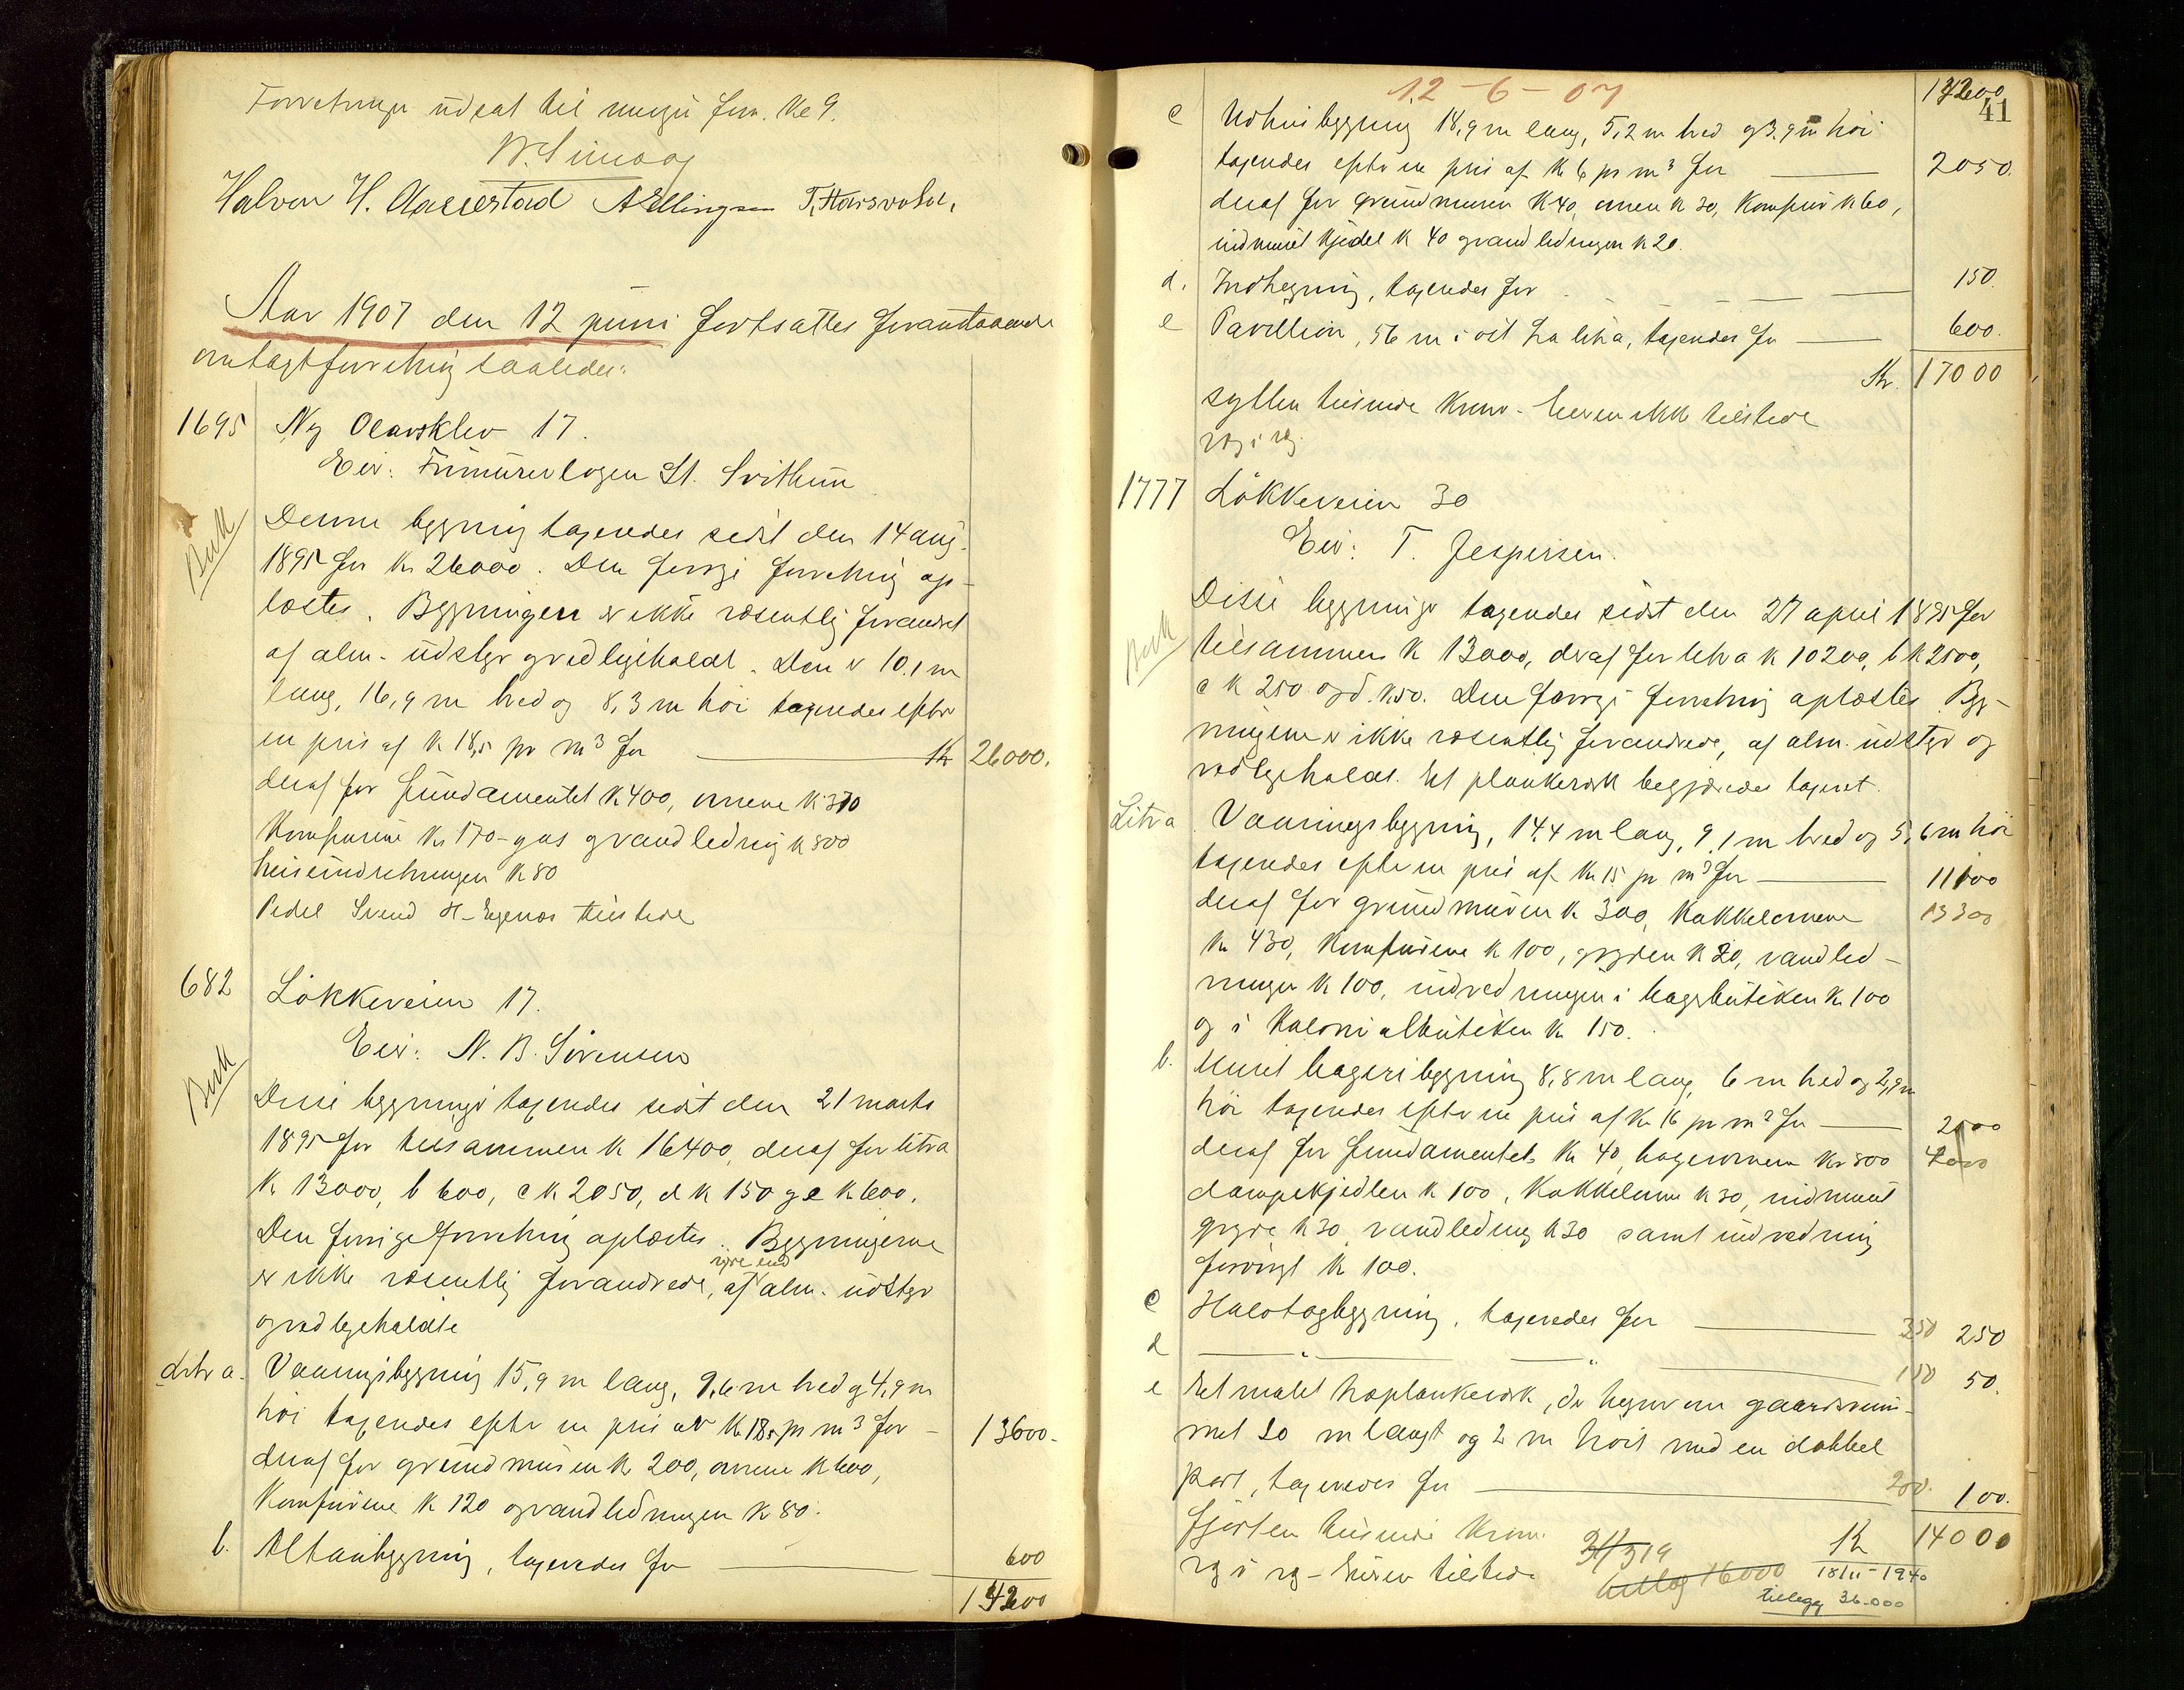 Forretningen udsat til morgen form. Kl 9.
Halvor H. Aarrestad A Ellingsen T. Haisvold.
Aar 1907 den 12 juni fortsattes foranstaaende
omtaxtforretning saaledes:
1695 Ny Olavsklev 17.
Eier: Frimurerlogen St. Svithun
Buk
Denne bygning taxeredes sidst den 14 aug.
1895 for Kr 26000. Den forrige forretning op-
læstes. Bygningen er ikke væsentlig forandret
af alm. udstyr og vedligeholdt. Den er 10.1 m
lang, 16,9 m bred og 8,3 m höi taxeredes efter
en pris af K 18,5 pr m³ for K 26000.
deraf for fundamentet K 400, ovnene K 370
Komfurene Kr 170 - gas og vandledning K 800
heisindretningen K 80
Pedel Svend H. Egenæs tilstede
682 Lökkeveien 17.
Eier: N. B. Sörensen
Buk
Disse bygninger taxeredes sidst den 21 marts
1895 for tilsammen K 16400, deraf for litra
K 13000, b 600, c K 2050, d K 150 og e K 600.
Den forrige forretning oplæstes. Bygningerne
er ikke væsentlig forandrede, af alm. udstyr
mere end
og vedligeholdte
Litr a. Vaaningsbygning 15,9 m lang, 9,6 m bred og 4,9 m
höi taxeredes efter en pris af K 18. pr m³ for 13600.
deraf for grundmuren K 200, ovnene K 600,
Komfurene K 120 og vandledningen K 80.
b. Altanbygning, taxeredes for 600
14200
12-6-07
14200
41
c Udhusbygning 18,9 m lang, 5,2 m bred og 3,9 m höi
taxeredes efter en pris af K 6 pr m³ for 2050.
deraf for grundmuren K 40, ovnen K 30, Komfur K 60,
indmuret Kjedel K 40 og vandledningen K 20.
d. Indhegning, taxeredes for 150.
e Pavillion, 56 m i öst fra litr a, taxeredes for 600.
Kr. 17000
sytten tusinde Kroner - Eieren ikke tilstede
1777 Lökkeveien 30
Eier: T. Jespersen.
Buk
Disse bygninger taxeredes sidst den 27 april 1895 for
tilsammen K 13000, deraf for litra a K 10200, b K 2500,
c K 250 og d. K 50. Den forrige forretning oplæstes. Byg-
ningerne er ikke væsentlig forandrede, af alm. udstyr og
vedligeholdt. Et plankeværk begjæredes taxeret.
Litr a Vaaningsbygning, 14,4 m lang, 9,1 m bred og 5,6 m höi
taxeredes efter en pris af Kr 15 pr m³ for 11100
deraf for grundmuren K 300, Kakkelovnene 13300
Kr 430, Komfurene K 100, gryden K 20, vandled-
ningen K 100, indredningen i bagerbutiken K 100
og i Kolonialbutiken K 150.
b. Muret bageribygning 8,8 m lang, 6 m bred og 2,9 m
höi taxeredes efter en pris af Kr 16 pr m³ for 2500
deraf for fundamentet Kr 40, bagerovnen Kr 800 4000
dampkjedlen K 100, Kakkelovn K 30, indmuret
gryde K 30, vandledning K 30 samt indredning
forövrigt K 100.
c Halvtagbygning, taxeredes for 350 250
d — " — " — 150 50.
e Et malet höiplankeværk, der hegner om gaardsrum-
met 20 m langt og 2 m höit med en dobbel
port, taxeredes for 200. 100.
fjorten tusinde Kroner. K 14000
Eieren tilstede
31/3 19
tillæg 16000
18/11-1940
tillegg 36.000